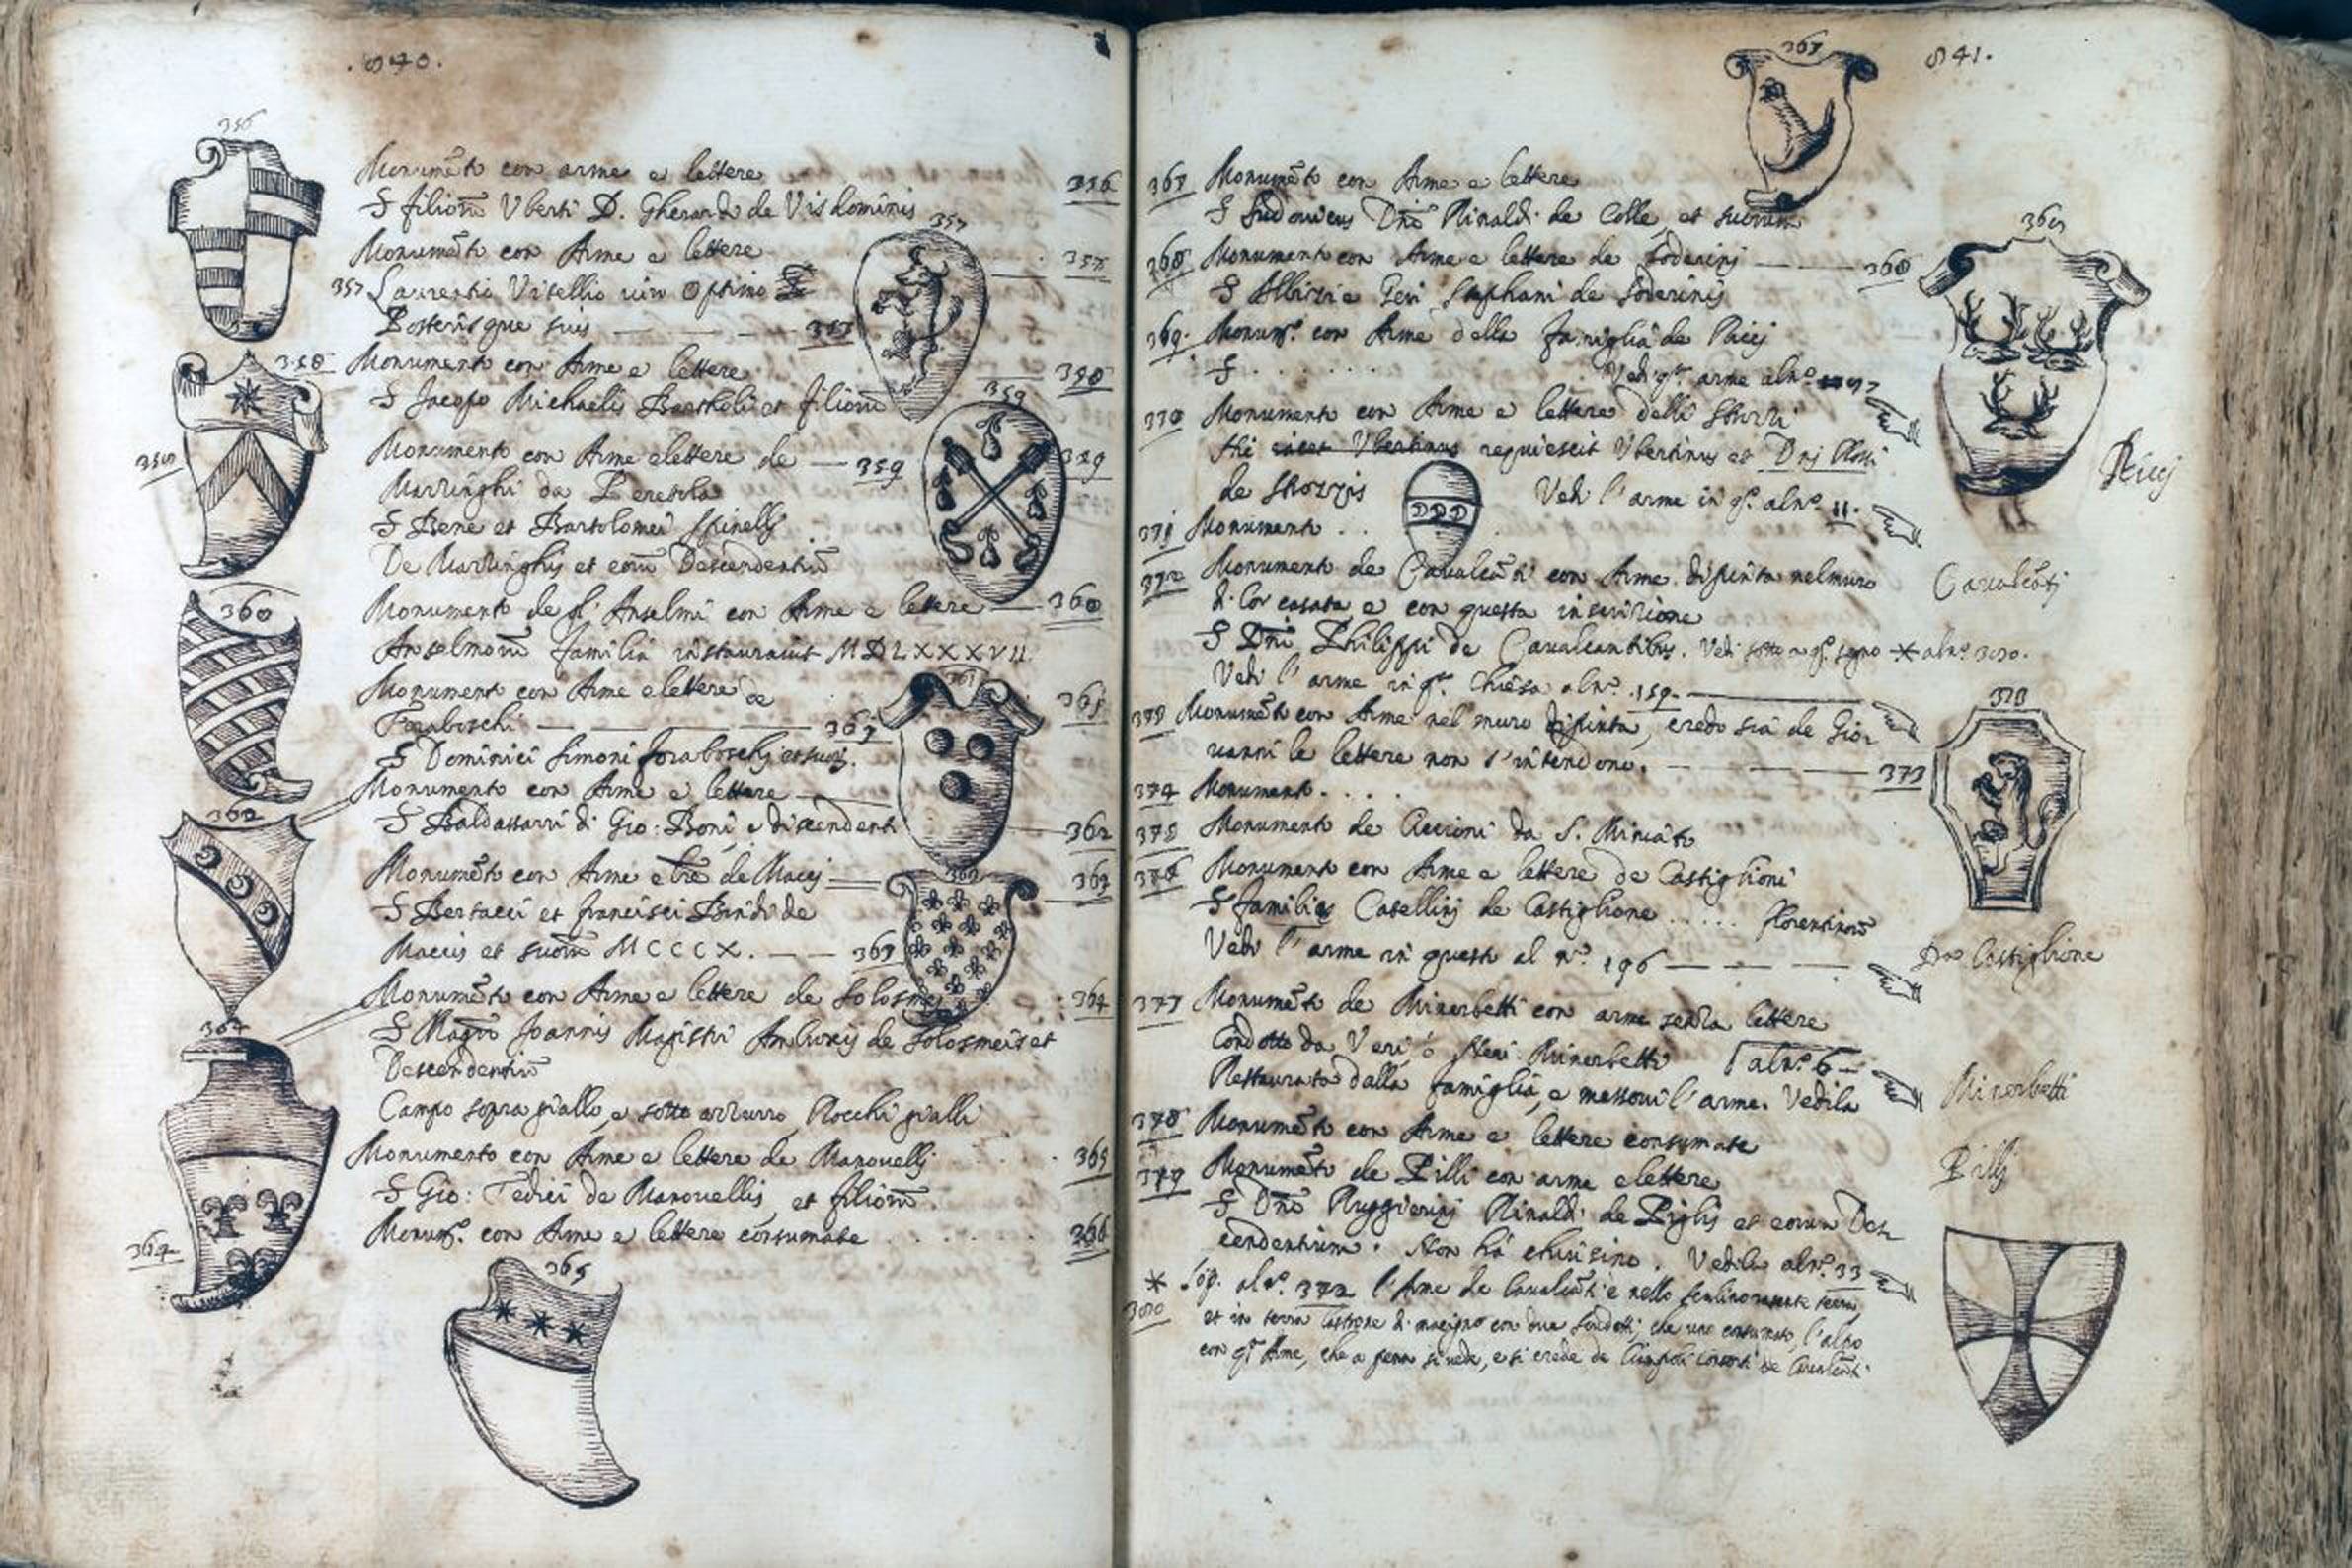 840.
356
Monumēto con arme e lettere 356
S filiorū Vberti D. Gherardi de Visdominis
Monumēto con Arme e lettere 357
357 Laurentio Vitellio viro Optimo
Posterisque suis 357
357
Monumento con Arme e lettere 358
358
S Jacopo Michaelis Bartholi et filiorū
359
Monumento con Arme e lettere de 359 359
Martinghi da Peretola
S Bene et Bartolomei Spinelli
De Martinghis et eorū Descendentiū
Monumento de gl' Anselmi con Arme e lettere 360
360
Anselmorū familia instauravit MDLXXXVII.
Monumento con Arme e lettere de 361
Foraboschi 361
361
S Dominici Simoni Foraboschi et suorū.
Monumento con Arme e lettere
362
S Baldassarri di Gio: Boni, e discendenti 362
Monumēto con Arme e lre de Macci 363
363
S Bertacci et Francisci Bindi de
Maccis et suorū MCCCX. 363
Monumēto con Arme e lettere de Solosmei 364
364
S Magri Joannis Magistri Ambroxij de Solosmeis et
Descendentiū
Campo sopra giallo, e sotto azzurro, Rocchi gialli
Monumento con Arme e lettere de Manovelli 365
S Gio: Tedici de Manovellis, et filiorū.
364
Monumto. con Arme e lettere consumate 366
365
841.
367
367 Monumēto con Arme e lettere
S Ludovicus Dno Rinaldi de Colle, et suorum
368 Monumento con Arme e lettere de Soderini 368
S Albizi e Geri Stephani de Soderinis
369. Monumto. con Arme della famiglia de Ricci
369
S . . . . . . Vedi qta. arme al no.
370 Monumento con Arme e lettere delli Strozzi
Hic requiescit Vbertinus et Dnj Rossi
de Strozzis Vedi l'arme in qa. al no. 11.
Ricci
DDD
371 Monumento . .
372 Monumento de Cavalcāti con Arme dipinta nel muro
Cavalcāti
di lor casata e con questa inscrizione
S Dni Philippi de Cavalcantibus. Vedi sotto a qo. segno * al no. 380.
Vedi l'arme in qta. chiesa al no. 159.
373 Monumēto con Arme nel muro dipinta, credo sia de Gio:
vanni le lettere non l'intendono. 373
373
374 Monumento. . . .
375 Monumento de Ciccioni da S. Miniato
376 Monumento con Arme e lettere de Castiglioni
S familie Catellini de Castiglione . . . . . florentinorū
Vedi l'arme in questo al no. 196
Da Castiglione
377 Monumēto de Minerbetti con arme senza lettere
Condotto da Veri ó Neri Minerbetti al no. 6
Restaurato dalla famiglia, e messovi l'arme. Vedila
Minerbetti
378 Monumēto con Arme e lettere consumate
379 Monumēto de Pilli con arme e lettere
Pilli
S Dno Ruggierini Rinaldi de Piglis et eorum Des
cendentium. Non há chiusino. Vedila al no. 33
* Sop. al no. 372 l'Arme de Cavalcāti è nello
380 et in terra lastrone di macigno con due, che uno consumato, l'altro
con qta. Arme, che a pena si vede, e si crede de Ciampoli consorti de Cavalcāti